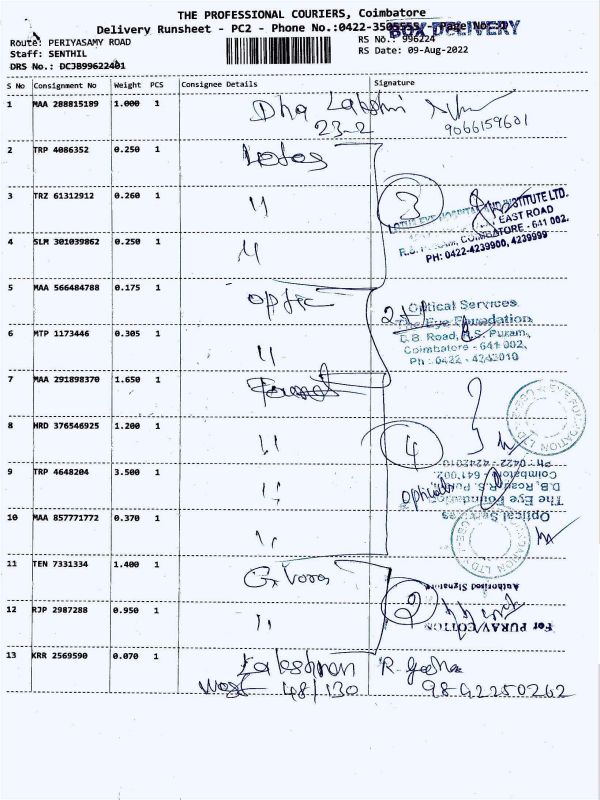 THE PROFESSIONAL COURIERS, Coimbatore
Delivery Runsheet - PC2 - Phone No.:0422-3505555/- Page No:
BOX DELIVERY
Route: PERIYASAMY ROAD
RS No.: 996224
Staff: SENTHIL
RS Date: 09-Aug-2022
DRS No.: DCJB99622401
S No Consignment No Weight PCS Consignee Details Signature
1 MAA 288815189 1.000 1 Dha Lakshmi
23-2 9066159601
2 TRP 4086352 0.250 1 Lotus
3 TRZ 61312912 0.260 1 " 3
LOTUS EYE HOSPITAL AND INSTITUTE LTD.
EAST ROAD
R.S. PURAM, COIMBATORE - 641 002.
PH: 0422-4239900, 4239999
4 SLM 301039862 0.250 1 "
5 MAA 566484788 0.175 1 optic
Optical Services
The Eye Foundation
D.B. Road, R.S. Puram,
Coimbatore - 641 002.
Ph : 0422 - 4242010
6 MTP 1173446 0.305 1 "
7 MAA 291898370 1.650 1
8 HRD 376546925 1.200 1 " 4
Ph : 0422 - 4242010
Coimbatore - 641 002.
D.B. Road, R.S. Puram,
The Eye Foundation
Optical Services
9 TRP 4648204 3.500 1 " opticals
10 MAA 857771772 0.370 1 "
11 TEN 7331334 1.400 1 G. Vora
Authorised Signature
12 RJP 2987288 0.950 1 " 2
For PURAV COTTON
13 KRR 2569590 0.070 1 Lakeshman R. Geetha
West 48/130 9892250262